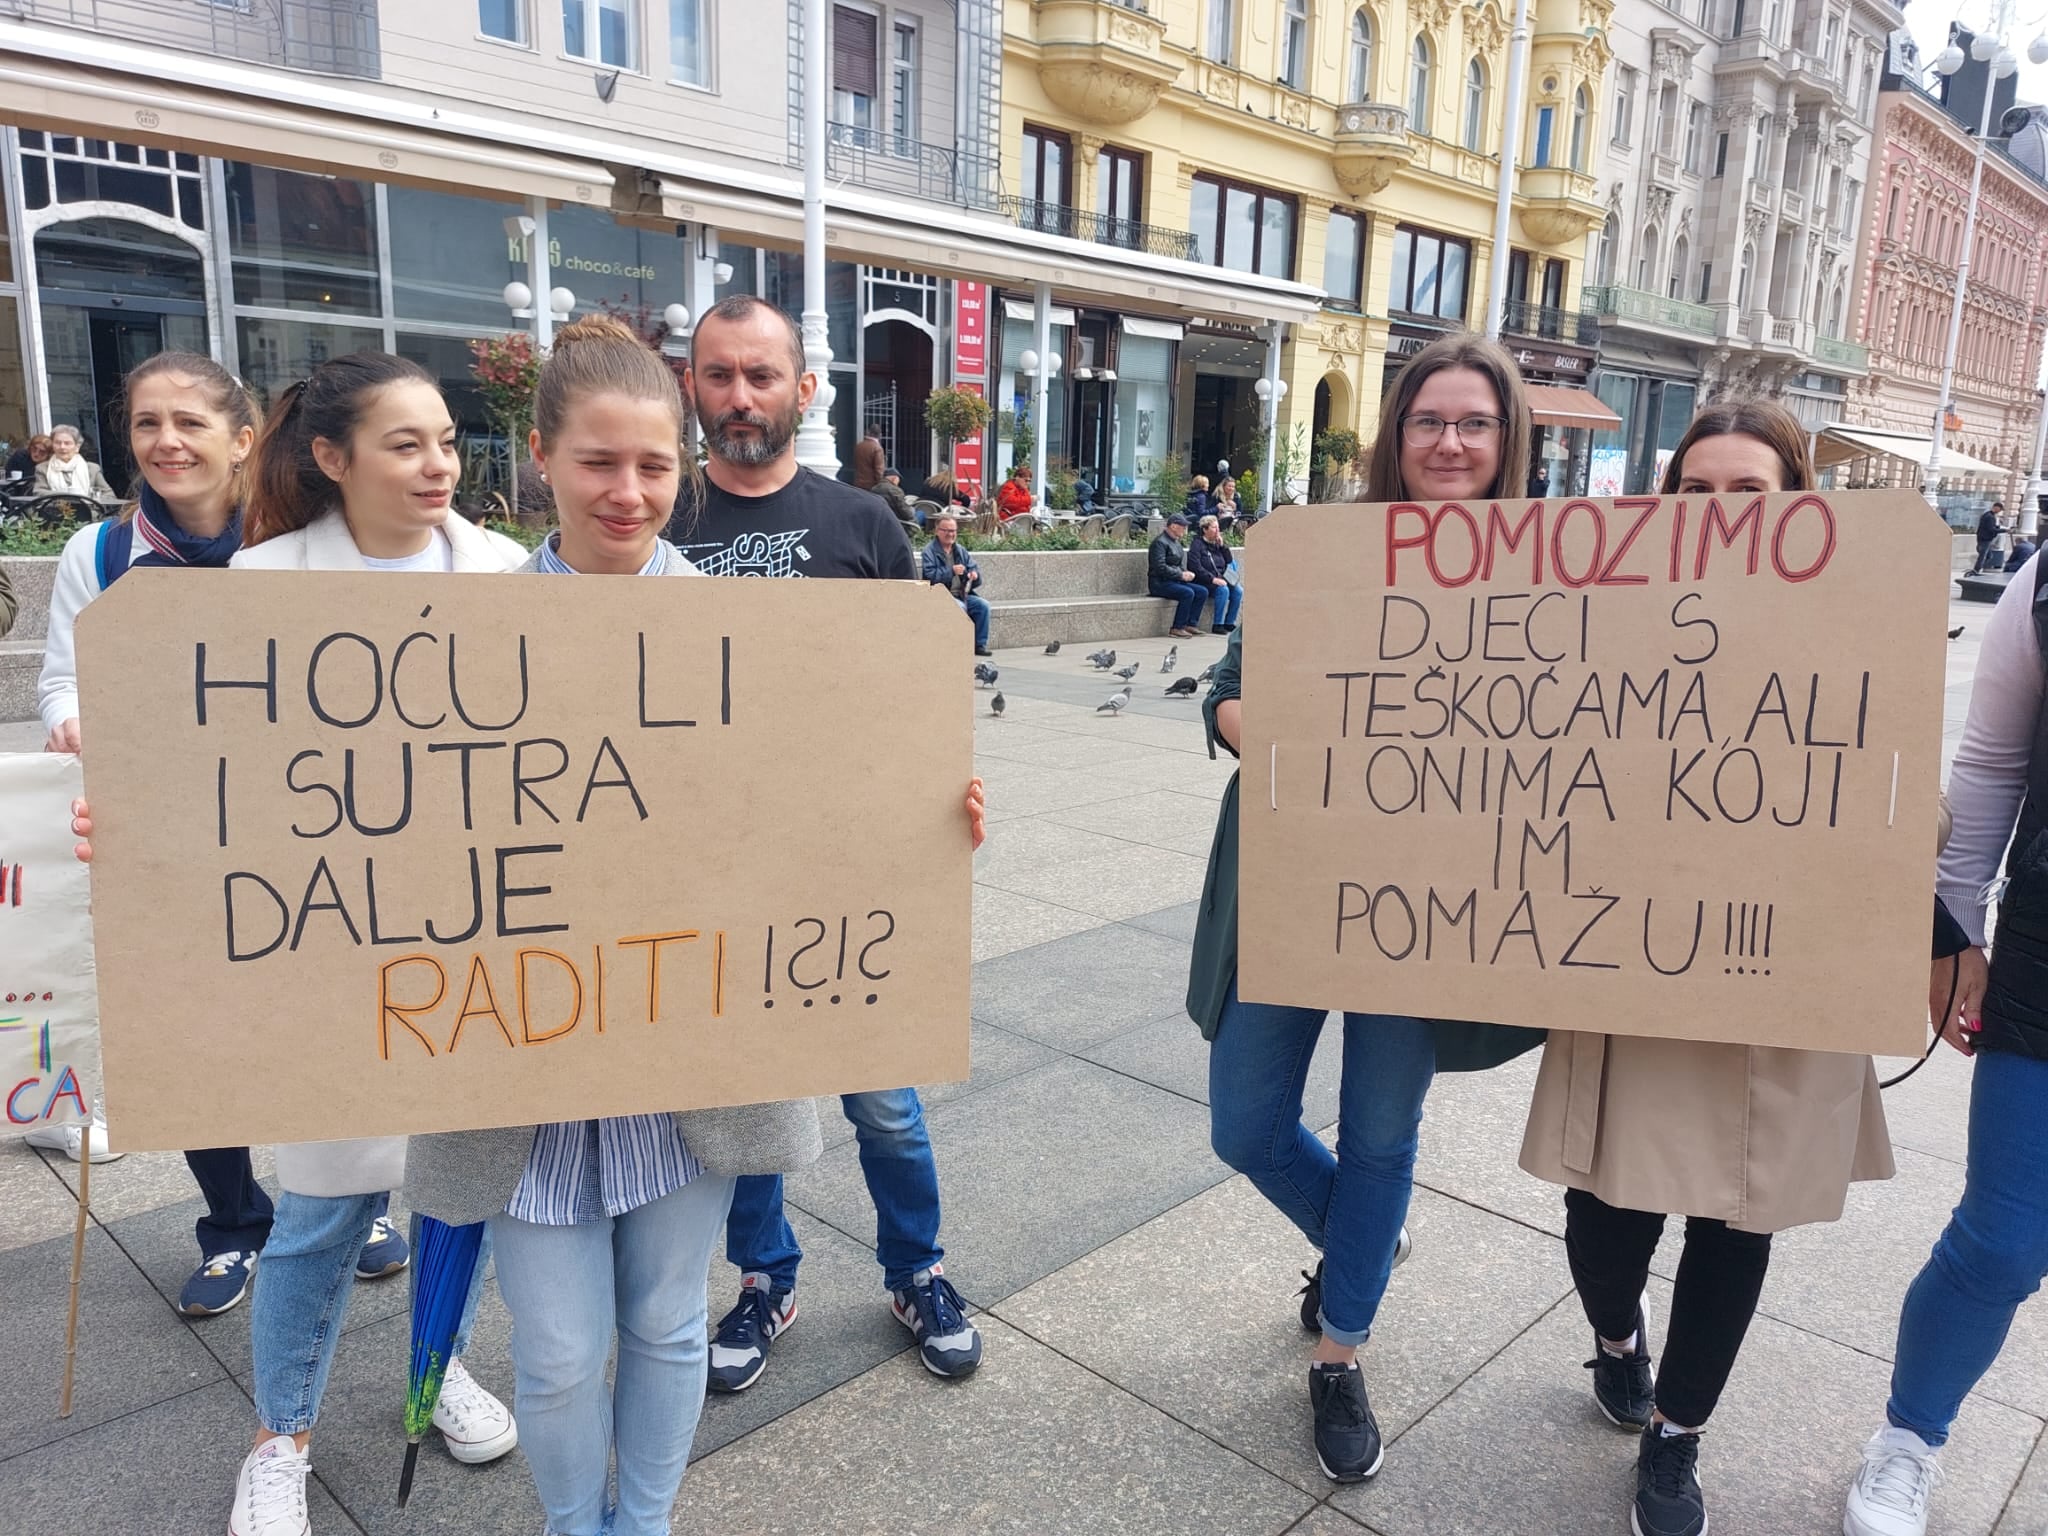 HOĆU LI
I SUTRA
DALJE
RADITI !?!?
POMOZIMO
DJECI S
TEŠKOĆAMA, ALI
I ONIMA KOJI
IM
POMAŽU!!!!
choco&café
BASLER
5
CA